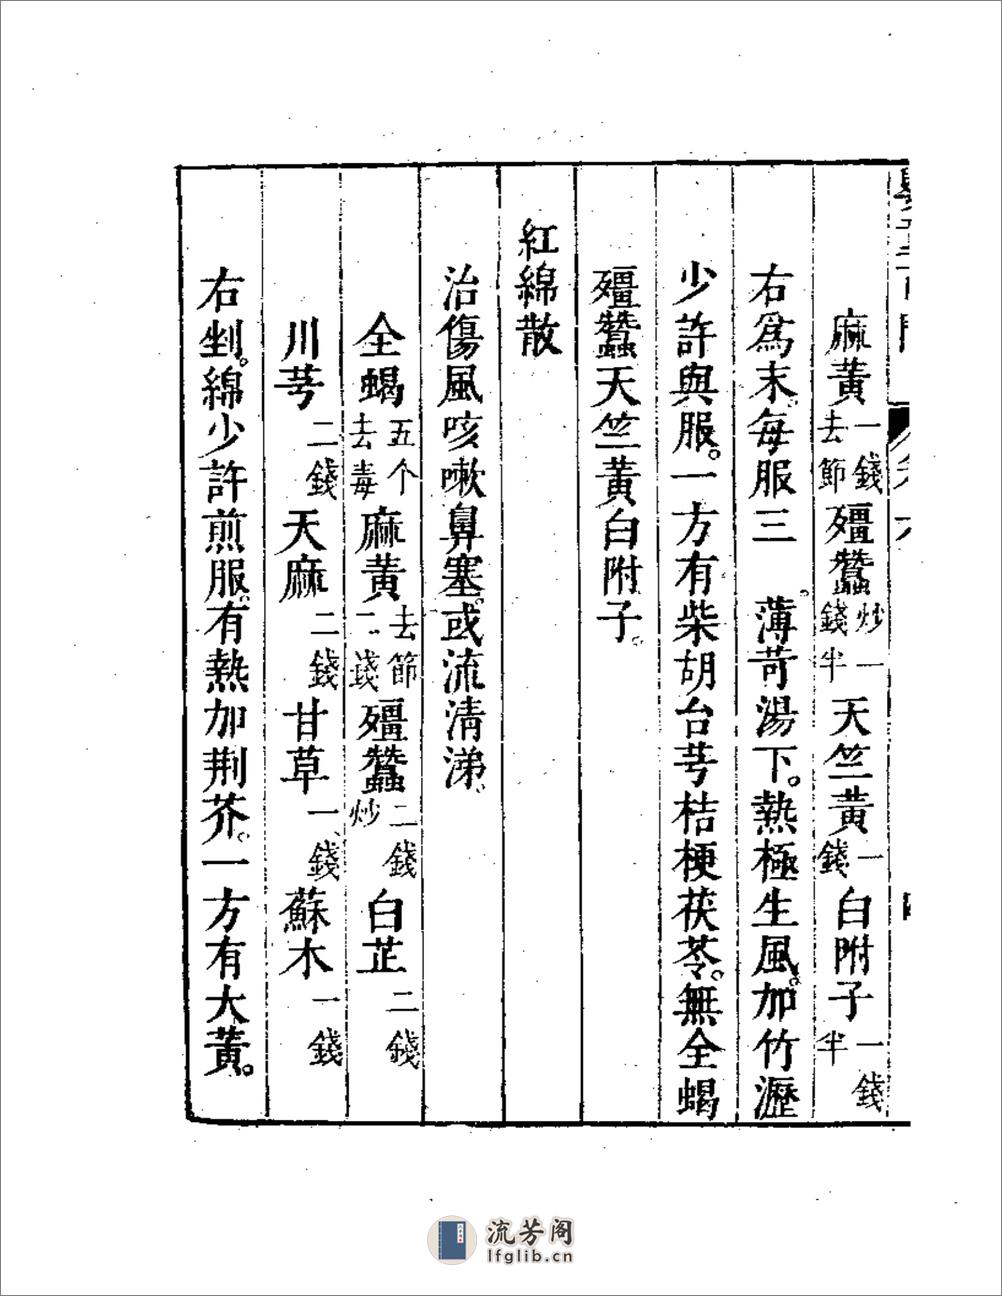 麻黃一錢去節殭蠶炒一錢半天竺黃一錢白附子一錢半
右爲末每服三 薄苛湯下。熱極生風。加竹瀝
少許與服。一方有柴胡台芎桔梗茯苓。無全蝎
殭蠶天竺黃白附子。
紅綿散
治傷風咳嗽鼻塞。或流清涕。
全蝎五个去毒麻黃去節二錢殭蠶二錢炒白芷二錢
川芎二錢天麻二錢甘草一錢蘇木一錢
右剉。綿少許煎服。有熱加荆芥。一方有大黃。
流芳阁
lfglib.cn